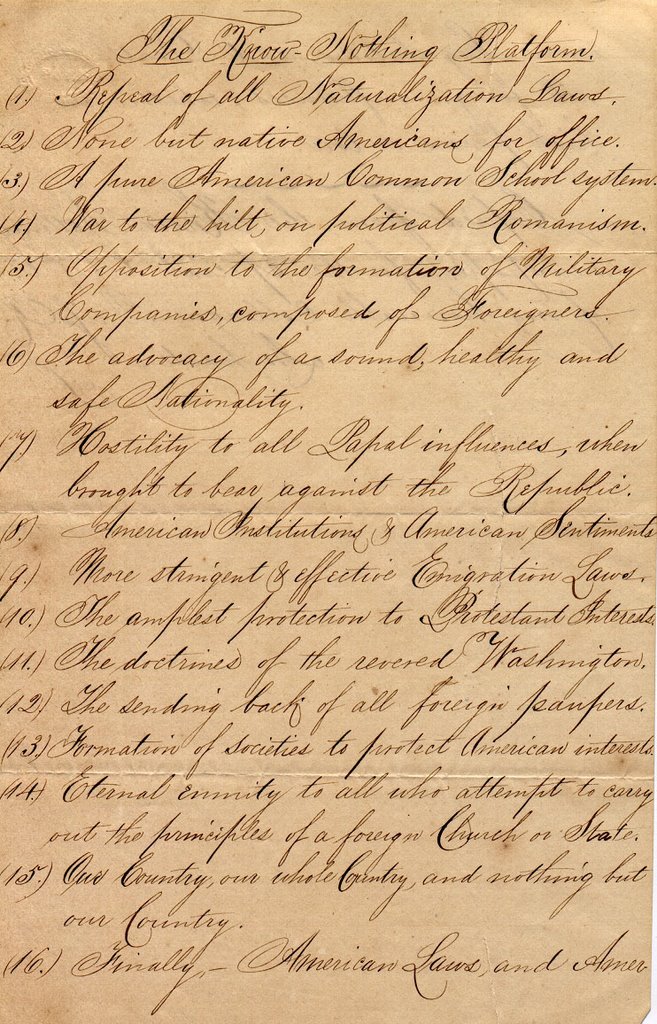 The Know-Nothing Platform.
(1.) Repeal of all Naturalization Laws.
(2) None but native Americans for office.
(3.) A pure American Common School system.
(4.) War to the hilt, on political Romanism.
(5.) Opposition to the formation of Military
Companies, composed of Foreigners.
(6) The advocacy of a sound, healthy and
safe Nationality.
(7) Hostility to all Papal influences, when
brought to bear against the Republic.
(8.) American Institutions & American Sentiments
(9.) More stringent & effective Emigration Laws.
(10.) The amplest protection to Protestant Interests.
(11.) The doctrines of the revered Washington.
(12) The sending back of all foreign paupers.
(13.) Formation of societies to protect American interests.
(14.) Eternal enmity to all who attempt to carry
out the principles of a foreign Church or State.
(15.) Our Country, our whole Country, and nothing but
our Country.
(16.) Finally, — American Laws, and Amer